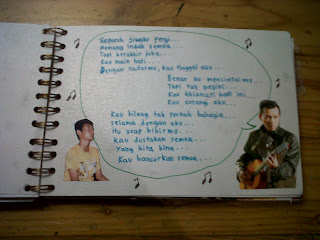 Separuh jiwaku pergi...
Memang indah semua...
Tapi berakhir luka...
Kau main hati...
Dengan sadarmu, kau tinggal aku...
Benar ku mencintaimu...
Tapi tak begini...
Kau khianati hati ini...
Kau curangi aku...
Kau bilang tak pernah bahagia...
selama dengan aku...
itu ucap bibirmu...
Kau dustakan semua...
Yang kita bina...
Kau hancurkan semua...